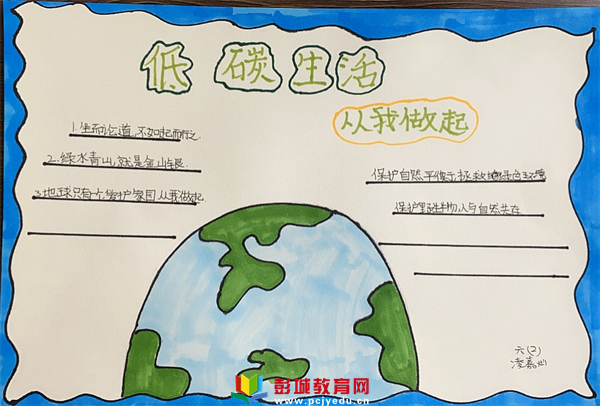 低碳生活
从我做起
1.坐而论道,不如起而行之.
2.绿水青山,就是金山银
3.地球只有个 护家园从我做起.
保护自然平衡 拯救 绿色环境
保护野生动物,人与自然共存
六(2)
凌嘉
彭城教育网
www.pcjyedu.cn